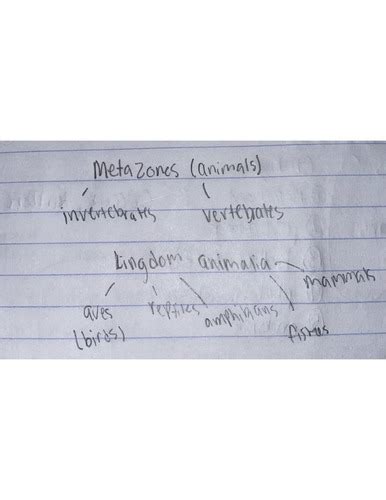 Metazones (animals)
invertebrates vertebrates
kingdom animalia
mammals
aves reptiles amphibians
(birds) fishes